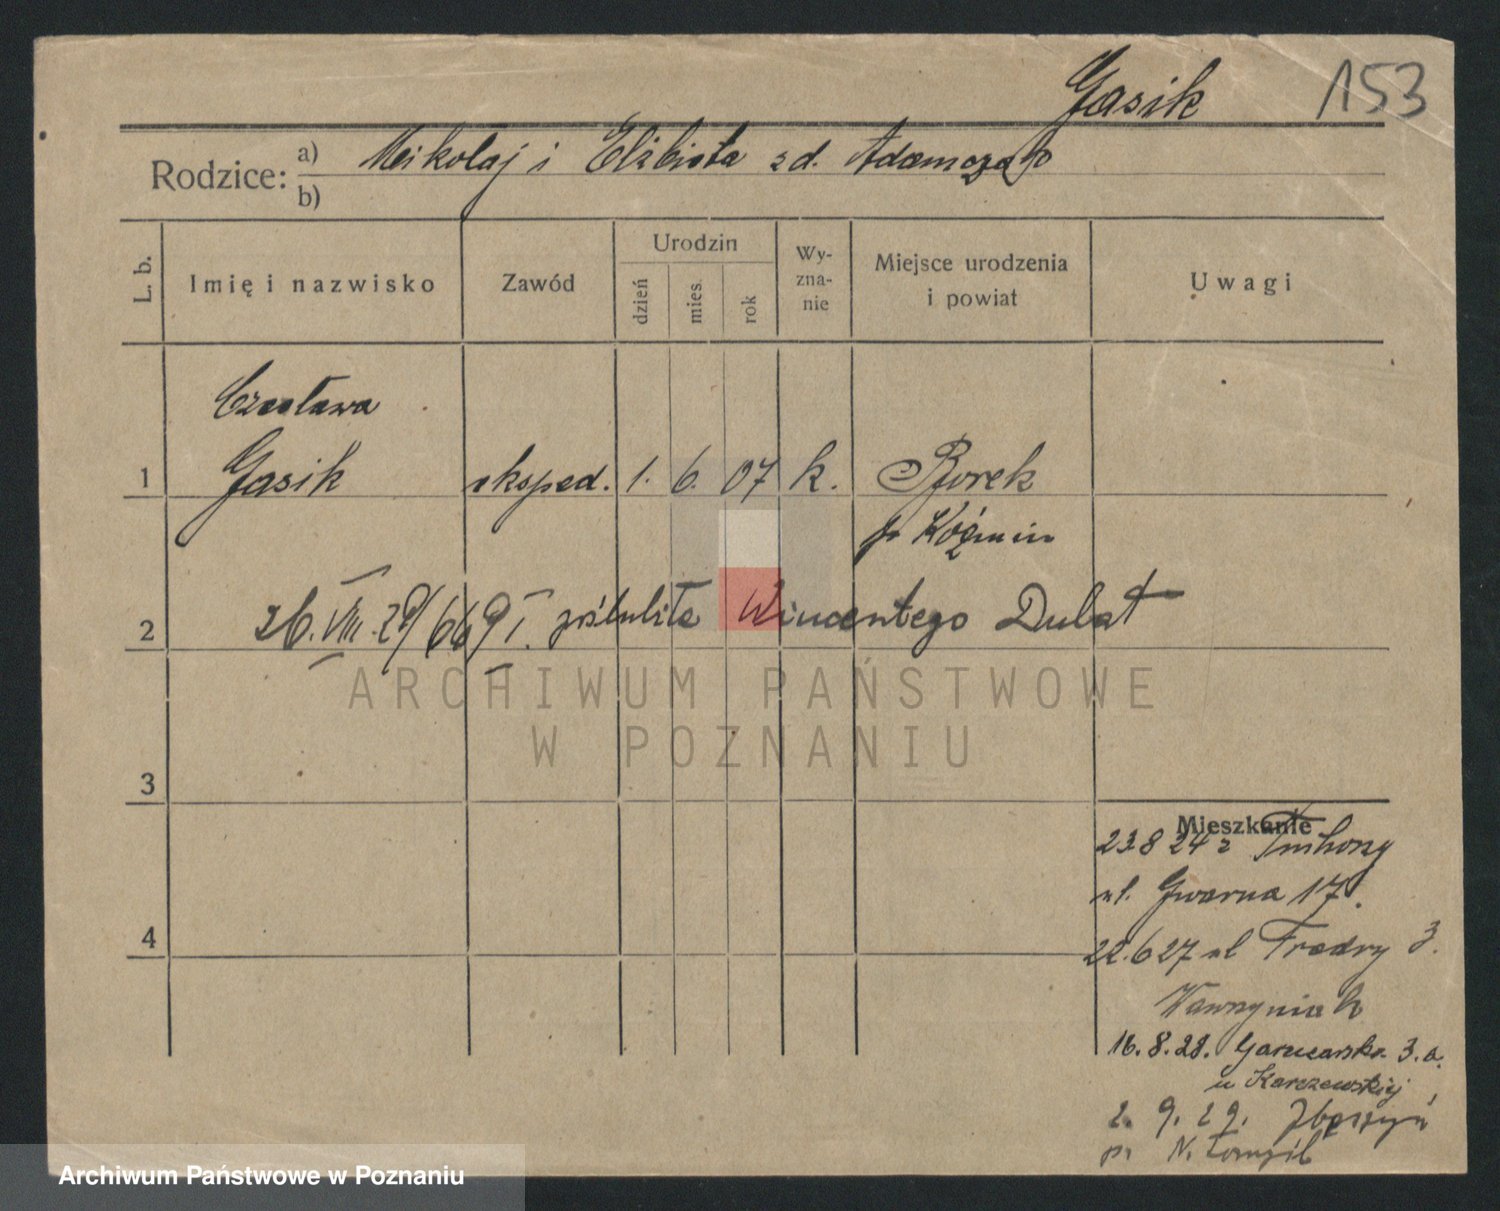 Gasik 153
Rodzice: a) Mikołaj i Elżbieta zd. Adamczak
b)
L. b. Imię i nazwisko Zawód Urodzin dzień mies. rok Wy-zna-nie Miejsce urodzenia i powiat Uwagi
Czesława
1 Gasik eksped. 1. 6. 07 k. Borek
p. Koźmin
2 26.VIII.29/669I. poślubiła Wincentego Dubat
ARCHIWUM PAŃSTWOWE
W POZNANIU
3
Mieszkanie
23 8 24 z
ul. Gwarna 17.
4
22.6 27 ul Fredry 3.
Wawrzyniak
16.8.28. Garncarska 3.a.
u Karczewskiej
2. 9. 29. Zbąszyń
p. N. Tomyśl
Archiwum Państwowe w Poznaniu